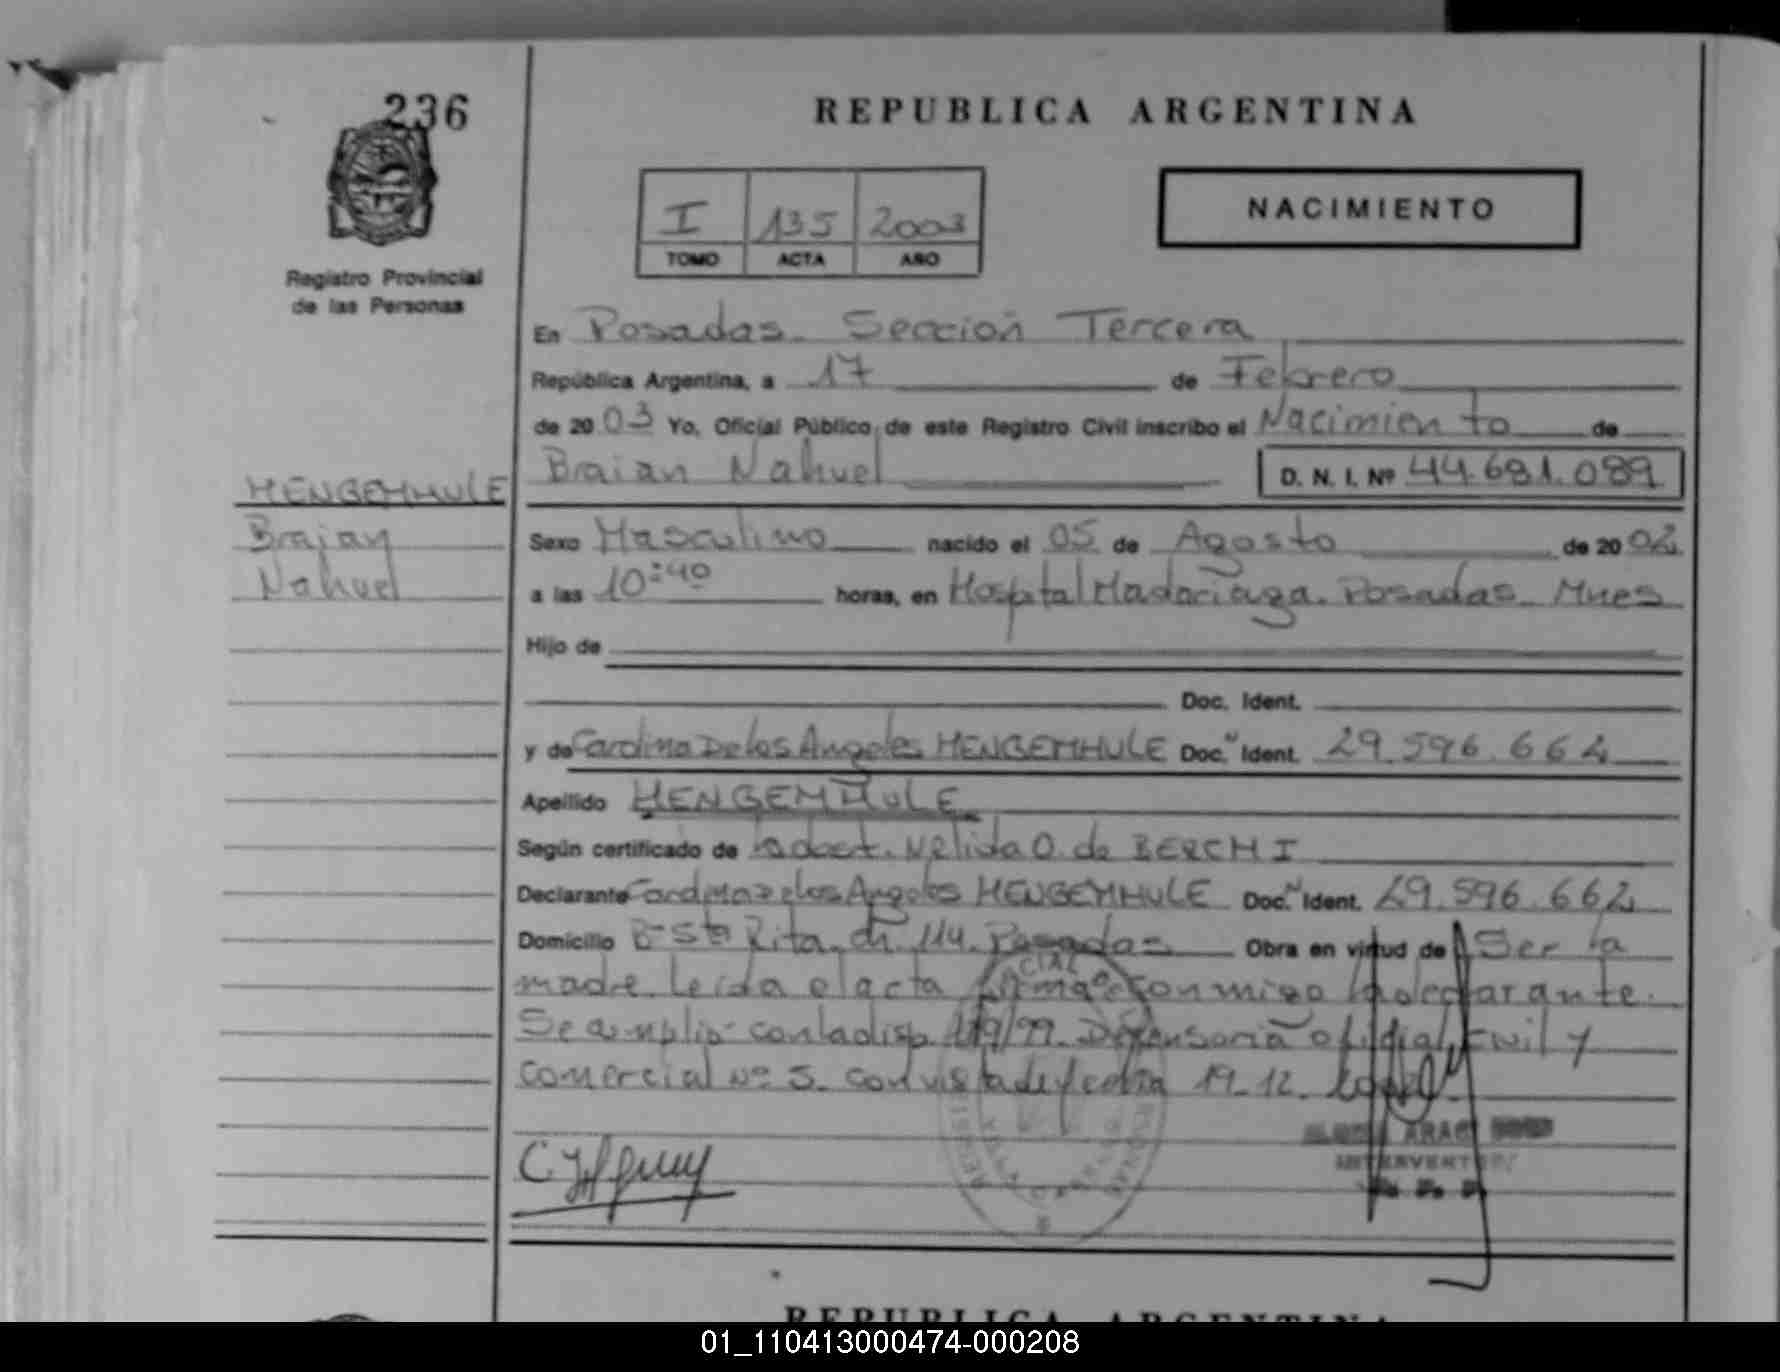 236
REPUBLICA ARGENTINA
I 135 2003
TOMO ACTA AÑO
NACIMIENTO
Registro Provincial
de las Personas
En Posadas. Sección Tercera
República Argentina, a 17 de Febrero
de 2003 Yo, Oficial Público, de este Registro Civil inscribo el Nacimiento de
Braian Nahuel D. N. I. Nº 44.681.089
HENGEMHULE
Braian
Nahuel
Sexo Masculino nacido el 05 de Agosto de 2002
a las 10:40 horas, en Hospital Madariaga. Posadas. Mnes
Hijo de
Doc. Ident.
y de Carolina De los Angeles HENGEMHULE Doc. N Ident. 29.596.662
Apellido HENGEMHULE
Según certificado de la obst. Nelida O. de BERCHI
Declarante Carolina De los Angeles HENGEMHULE Doc. N Ident. 29.596.662
Domicilio Bº Sta Rita. ch. 114. Posadas Obra en virtud de Ser la
madre. Leida el acta firma conmigo la declarante.
Se amplio con la disp. 119/99. Defensoria oficial Civil y
Comercial Nº 5. con vista de fecha 19-12.
INTERVENTOR
REPUBLICA ARGENTINA
01_110413000474-000208